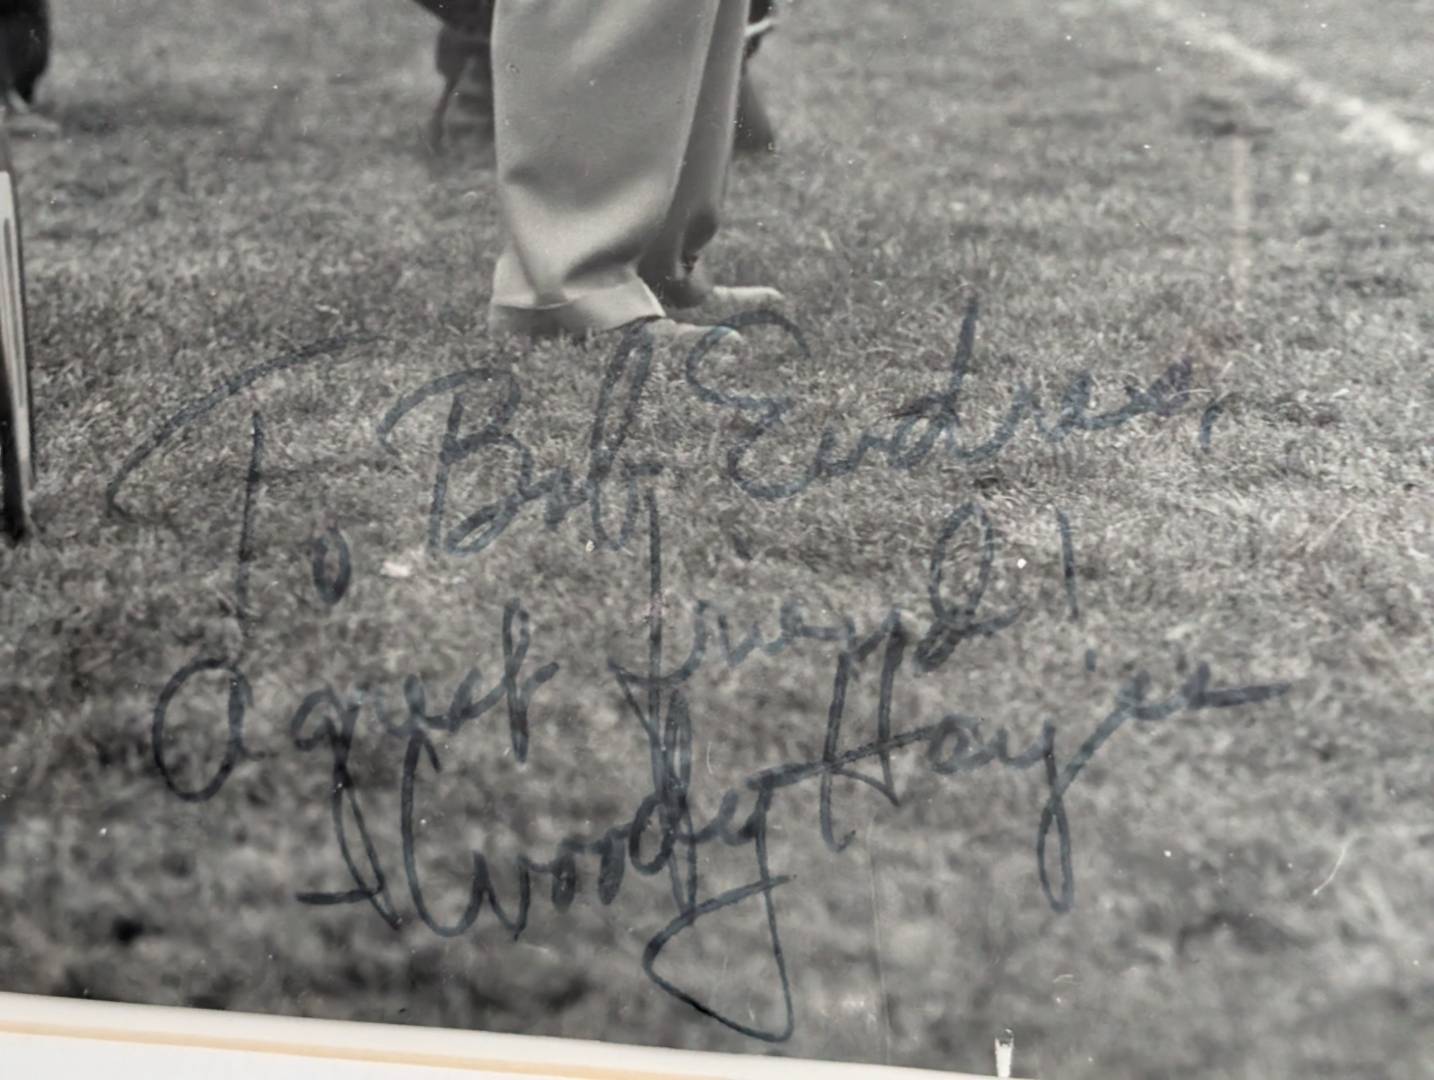 To Bob Endress,
A great friend!
Woody Hayes